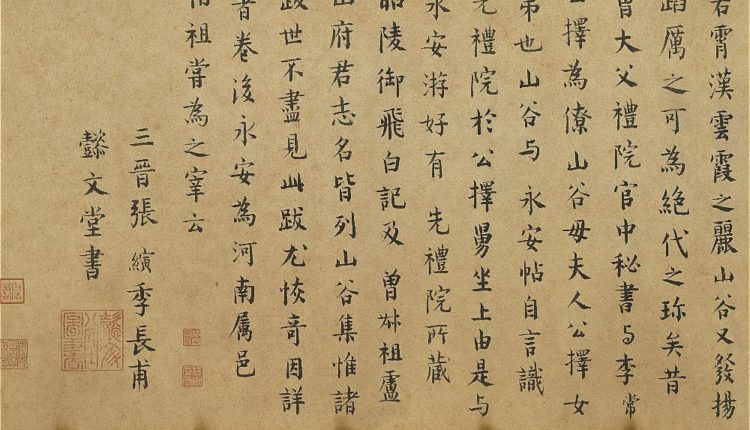 若霄漢雲霞之麗山谷又發揚
蹈厲之可為絕代之珍矣昔
曾大父禮院官中秘書与李常
公擇為僚山谷母夫人公擇女
弟也山谷与永安帖自言識
先禮院於公擇舅坐上由是与
永安游好有 先禮院所藏
昭陵御飛白記及 曾叔祖盧
山府君志名皆列山谷集惟諸
跋世不盡見此跋尤恢奇因詳
著卷後永安為河南属邑
伯祖嘗為之宰云
三晉張縯季長甫
懿文堂書